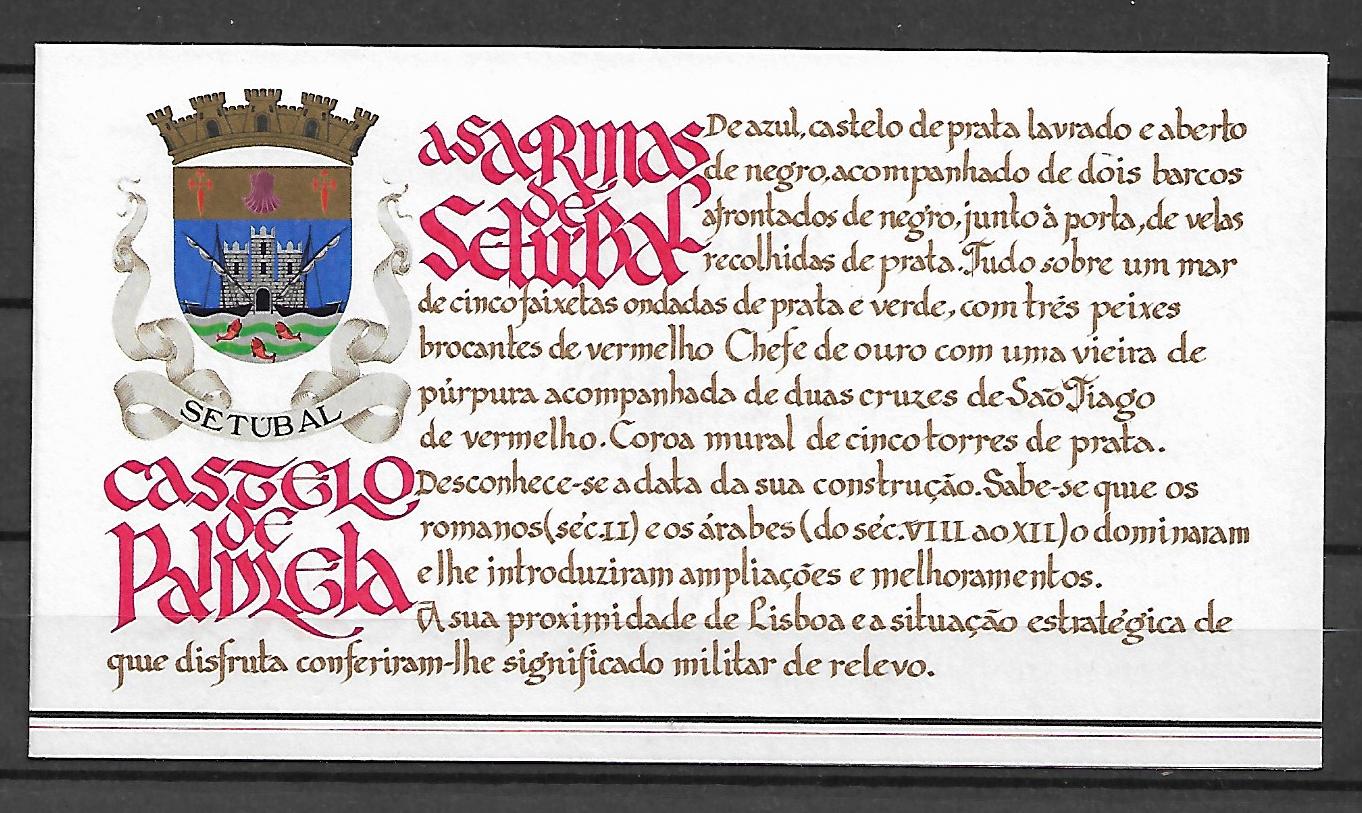 SETUBAL
AS ARMAS
de
SETUBAL
De azul, castelo de prata lavrado e aberto
de negro, acompanhado de dois barcos
afrontados de negro, junto à porta, de velas
recolhidas de prata. Tudo sobre um mar
de cinco faixetas ondadas de prata e verde, com três peixes
brocantes de vermelho Chefe de ouro com uma vieira de
púrpura acompanhada de duas cruzes de São Tiago
de vermelho. Coroa mural de cinco torres de prata.
CASTELO
de
PALMELA
Desconhece-se a data da sua construção. Sabe-se que os
romanos (séc. II) e os árabes (do séc. VIII ao XII) o dominaram
e lhe introduziram ampliações e melhoramentos.
A sua proximidade de Lisboa e a situação estratégica de
que disfruta conferiram-lhe significado militar de relevo.